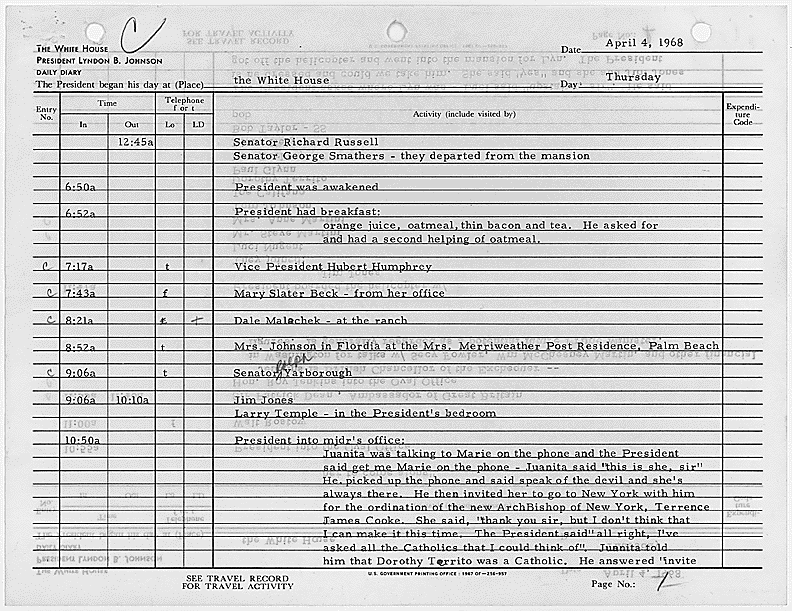 C
THE WHITE HOUSE
PRESIDENT LYNDON B. JOHNSON
DAILY DIARY
Date April 4, 1968
The President began his day at (Place) the White House Day Thursday
Entry No. Time Telephone f or t Activity (include visited by) Expenditure Code
In Out Lo LD
12:45a Senator Richard Russell
Senator George Smathers - they departed from the mansion
6:50a President was awakened
6:52a President had breakfast:
orange juice, oatmeal, thin bacon and tea. He asked for
and had a second helping of oatmeal.
C 7:17a t Vice President Hubert Humphrey
C 7:43a f Mary Slater Beck - from her office
C 8:21a t + Dale Malechek - at the ranch
8:52a t Mrs. Johnson in Flordia at the Mrs. Merriweather Post Residence, Palm Beach
Ralph
C 9:06a t Senator Yarborough
9:06a 10:10a Jim Jones
Larry Temple - in the President's bedroom
10:50a President into mjdr's office:
Juanita was talking to Marie on the phone and the President
said get me Marie on the phone - Juanita said "this is she, sir"
He picked up the phone and said speak of the devil and she's
always there. He then invited her to go to New York with him
for the ordination of the new ArchBishop of New York, Terrence
James Cooke. She said, "thank you sir, but I don't think that
I can make it this time. The President said "all right, I've
asked all the Catholics that I could think of". Juanita told
him that Dorothy Territo was a Catholic. He answered "invite
SEE TRAVEL RECORD
FOR TRAVEL ACTIVITY
U.S. GOVERNMENT PRINTING OFFICE : 1967 OF—256-957
Page No.: 1